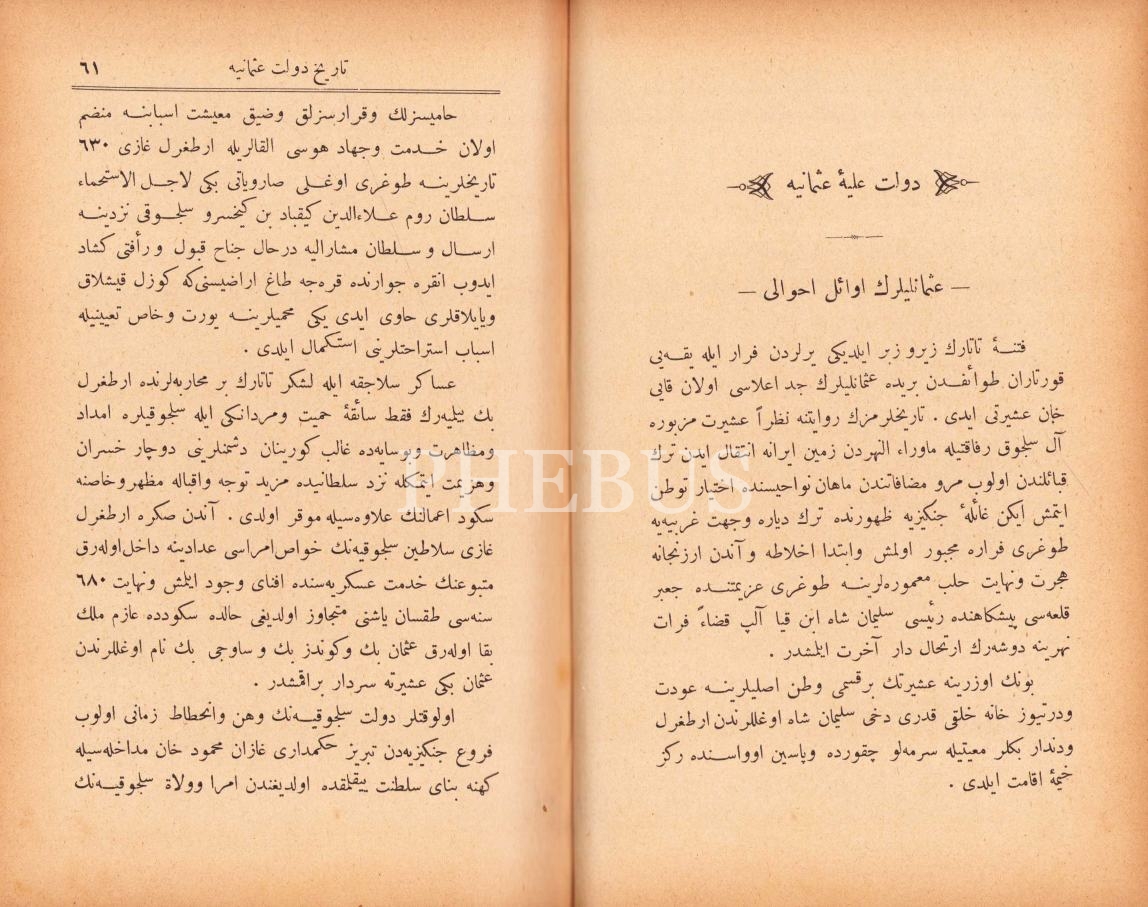 دولت علیۀ عثمانیه
— عثمانلیلرك اوائل احوالی —
فتنۀ تاتارك زیر و زبر ایلدیكی یرلردن فرار ایله یقه‌یی
قورتاران طوائفدن بریده عثمانلیلرك جد اعلاسی اولان قایی
خان عشیرتی ایدی . تاریخلرمزك روایتنه نظراً عشیرت مزبوره
آل سلجوق رفاقتیله ماوراء النهردن زمین ایرانه انتقال ایدن ترك
قبائلندن اولوب مرو مضافاتندن ماهان نواحیسنده اختیار توطن
ایتمش ایكن غائلۀ جنكیزیه ظهورنده ترك دیاره وجهت غربیه‌یه
طوغری فراره مجبور اولمش وابتدا اخلاطه و آندن ارزنجانه
هجرت ونهایت حلب معموره‌لرینه طوغری عزیمتنده جعبر
قلعه‌سی پیشكاهنده رئیسی سلیمان شاه ابن قیا آلپ قضاءً فرات
نهرینه دوشه‌رك ارتحال دار آخرت ایلمشدر .
بونك اوزرینه عشیرتك برقسمی وطن اصلیلرینه عودت
ودرتیوز خانه خلقی قدری دخی سلیمان شاه اوغللرندن ارطغرل
ودندار بكلر معیتیله سرمه‌لو چقورده وپاسین اوواسنده ركز
خیمۀ اقامت ایلدی .
تاریخ دولت عثمانیه
٦١
حامیسزلك وقرارسزلق وضیق معیشت اسبابنه منضم
اولان خدمت وجهاد هوسی القالریله ارطغرل غازی ٦٣٠
تاریخلرینه طوغری اوغلی صارویاتی بكی لاجل الاستحماء
سلطان روم علاءالدین كیقباد بن كیخسرو سلجوقی نزدینه
ارسال و سلطان مشارالیه درحال جناح قبول و رأفتی كشاد
ایدوب انقره جوارنده قره‌جه طاغ اراضیسنی كه كوزل قیشلاق
ویایلاقلری حاوی ایدی یكی محمیلرینه یورت وخاص تعیینیله
اسباب استراحتلرینی استكمال ایلدی .
عساكر سلاجقه ایله لشكر تاتارك بر محاربه‌لرنده ارطغرل
بك بیلیه‌رك فقط سائقۀ حمیت ومردانكی ایله سلجوقیلره امداد
ومظاهرت وبوسایه‌ده غالب كورینان دشمنلرینی دوچار خسران
وهزیمت ایتمكله نزد سلطانیده مزید توجه واقباله مظهر وخاصنه
سكود اعمالنك علاوه‌سیله موقر اولدی . آندن صكره ارطغرل
غازی سلاطین سلجوقیه‌نك خواص امراسی عدادینه داخل اوله‌رق
متبوعنك خدمت عسكریه‌سنده افنای وجود ایلمش ونهایت ٦٨٠
سنه‌سی طقسان یاشنی متجاوز اولدیغی حالده سكودده عازم ملك
بقا اوله‌رق عثمان بك وكوندز بك و ساوجی بك نام اوغللرندن
عثمان بكی عشیرته سردار براقمشدر .
اولوقتلر دولت سلجوقیه‌نك وهن وانحطاط زمانی اولوب
فروع جنكیزیه‌دن تبریز حكمداری غازان محمود خان مداخله‌سیله
كهنه بنای سلطنت ییقلمقده اولدیغندن امرا وولاة سلجوقیه‌نك
PHEBUS